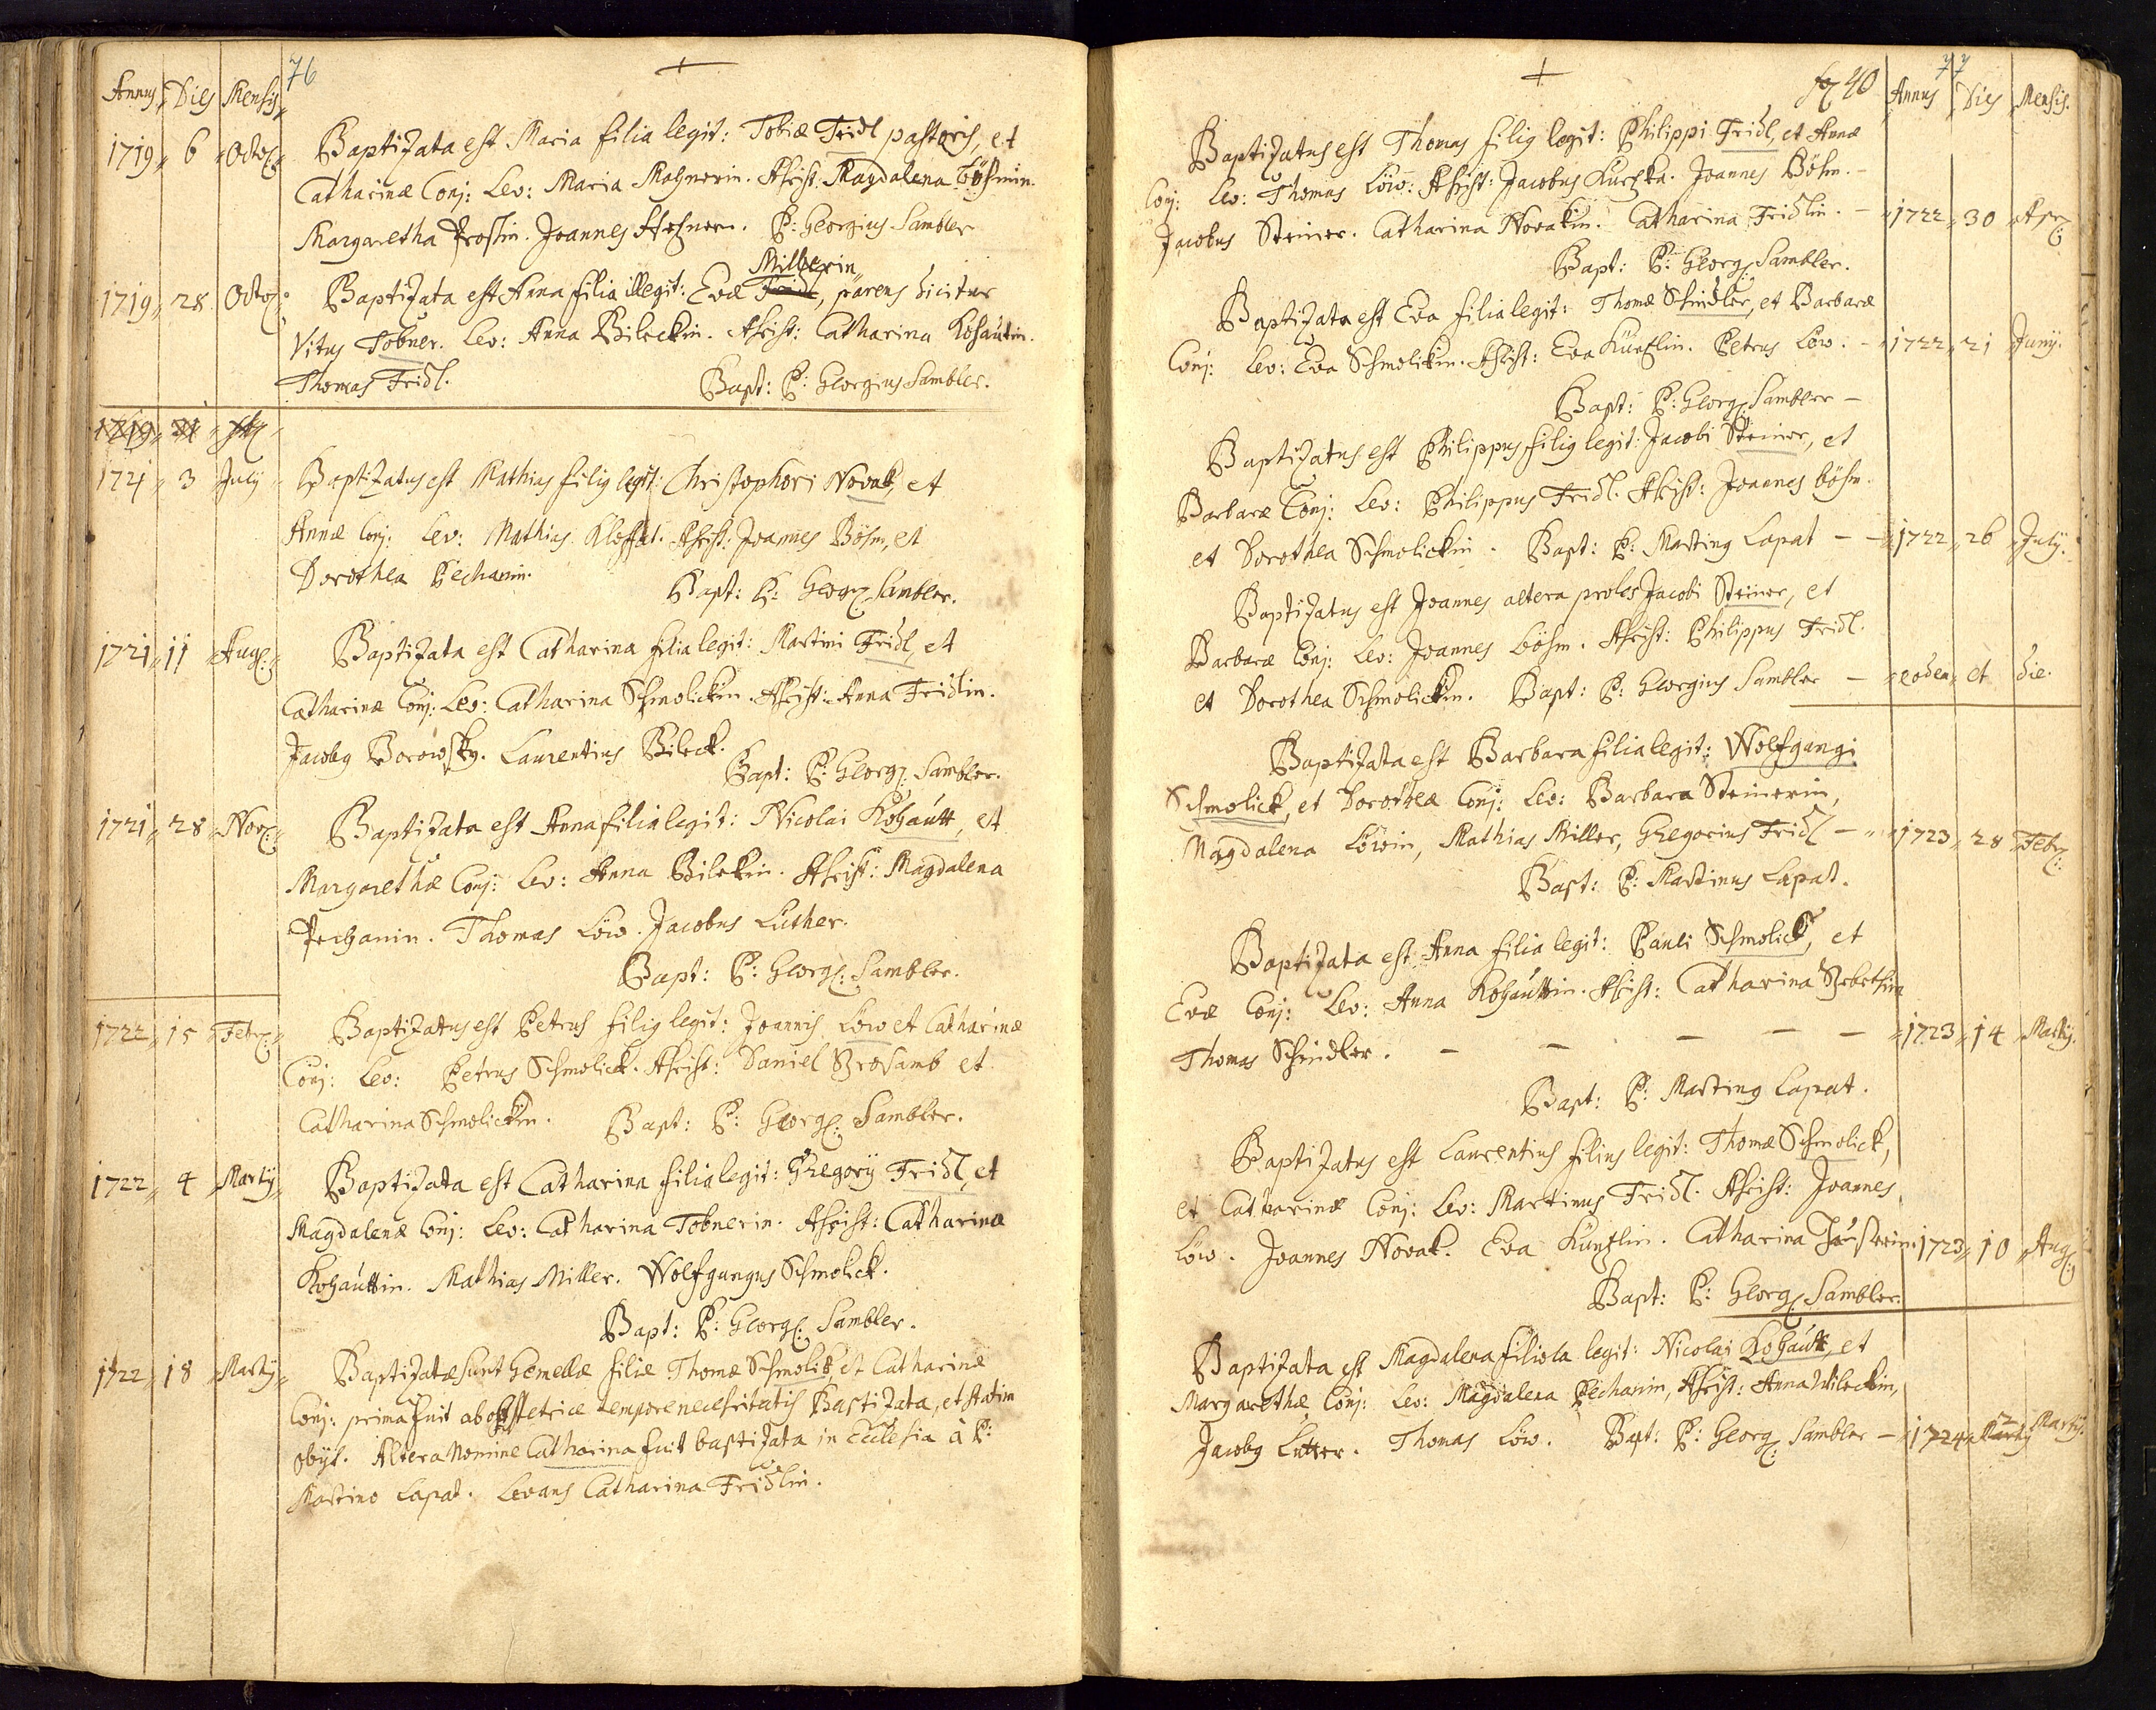 76
Annus Dies Mensis
1719 6 Octo: Baptizata est Maria filia legit: Tobiæ Fridl pastoris, et
Catharinæ Conj: Lev: Maria. Assist: Magdalena Böhmin.
Margaretha Joannes. P: Georgius Sambler
Millerin
1719 28 Octo: Baptizata est Anna filia illegit: Evæ Fridl, parens dicitur
Vitus Tobner. Lev: Anna Bileckin. Assist: Catharina Kohautin.
Thomas Fridl. Bapt: P: Georgius Sambler.
1719 21
1721 3 July Baptizatus est Mathias filig legit: Christophori Novak, et
Annæ Conj: Lev: Mathias. Assist: Joannes Böhm, et
Dorothea Pechanin. Bapt: P: Georg: Sambler.
1721 11 Aug: Baptizata est Catharina filia legit: Martini Fridl, et
Catharinæ Conj: Lev: Catharina Schmolickin. Assist: Anna Fridlin.
Jacobg Borowsky. Laurentius Bileck.
Bapt: P: Georg: Sambler.
1721 28 Nov: Baptizata est Anna filia legit: Nicolai Kohautt, et
Margarethæ Conj: Lev: Anna Bilekin. Assist: Magdalena
Pechanin. Thomas Löw. Jacobus Luther.
Bapt: P: Georg: Sambler.
1722 15 Febr: Baptizatus est Petrus filig legit: Joannis Löw et Catharinæ
Conj: Lev: Petrus Schmolick. Assist: Daniel et
Catharina Schmolickin. Bapt: P: Georg: Sambler.
1722 4 Martij Baptizata est Catharina filia legit: Gregorij Fridl, et
Magdalenæ Conj: Lev: Catharina Tobnerin. Assist: Catharina
Kohauttin. Mathias Miller. Wolfgangus Schmolick.
Bapt: P: Georg: Sambler.
1722 18 Martij Baptizatæ sunt Gemellæ filiæ Thomæ Schmolik, et Catharinæ
Conj: prima fuit ab obstetrice tempore necessitatis Baptizata, et statim
obijt. Altera Nomine Catharina fuit baptizata in Ecclesia à P:
Martino Lapat. Levans Catharina Fridlin.
77
40 Annus Dies Mensis.
Baptizatus est Thomas filig legit: Philippi Fridl, et Annæ
Conj: Lev: Thomas Löw: Assist: Jacobus Kuczka. Joannes Böhm. -
Jacobus Steiner. Catharina Novakin. Catharina Fridlin. - 1722 30 Apr:
Bapt: P: Georg: Sambler.
Baptizata est Eva filia legit: Thomæ Schindler, et Barbaræ
Conj: Lev: Eva Schmolickin. Assist: Eva Kunzlin. Petrus Löw. - 1722 21 Junij.
Bapt: P: Georg: Sambler -
Baptizatus est Philippus filig legit: Jacobi Steiner, et
Barbaræ Conj: Lev: Philippus Fridl. Assist: Joannes böhm.
et Dorothea Schmolickin. Bapt: P: Marting Lapat - - 1722 26 July.
Baptizatus est Joannes altera proles Jacobi Steiner, et
Barbaræ Conj: Lev: Joannes böhm. Assist: Philippus Fridl.
et Dorothea Schmolickin. Bapt: P: Georgius Sambler - eodem et die.
Baptizata est Barbara filia legit: Wolfgangi
Schmolick, et Dorotheæ Conj: Lev: Barbara Steinerin,
Magdalena Löwin, Mathias Miller, Gregorius Fridl - 1723 28 Febr:
Bapt: P: Martinus Lapat.
Baptizata est Anna filia legit: Pauli Schmolick, et
Evæ Conj: Lev: Anna Kohauttin. Assist: Catharina
Thomas Schindler. - - - - - 1723 14 Martij.
Bapt: P: Marting Lapat.
Baptizatus est Laurentius filius legit: Thomæ Schmolick,
et Catharinæ Conj: Lev: Martinus Fridl. Assist: Joannes
Löw. Joannes Novak. Eva Kunzlin. Catharina 1723 10 Aug:
Bapt: P: Georg: Sambler.
Baptizata est Magdalena filiola legit: Nicolai Kohautt, et
Margarethæ Conj: Lev: Magdalena Pechanin, Assist: Anna Wileckin,
Jacobg Lutter. Thomas Löw. Bapt: P: Georg: Sambler - 1724 2 Martij.